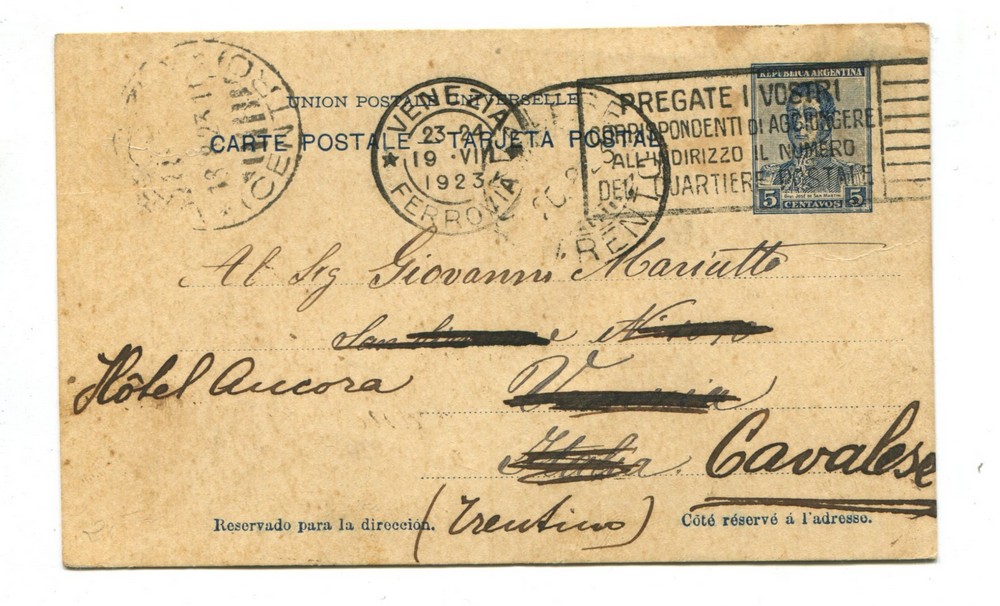 REPUBLICA ARGENTINA
UNION POSTALE UNIVERSELLE
CARTE POSTALE - TARJETA POSTAL
VENEZIA
23-24
19 · VIII
1923
FERROVIA
PREGATE I VOSTRI
CORRISPONDENTI DI AGGIUNGERE
ALL'INDIRIZZO IL NUMERO
DEL QUARTIERE POSTALE
5 CENTAVOS 5
CENTRO
Al Sig Giovanni Mariutto
Hôtel Ancora
Italia.
Cavalese
(Trentino)
Reservado para la dirección.
Côté réservé á l'adresse.